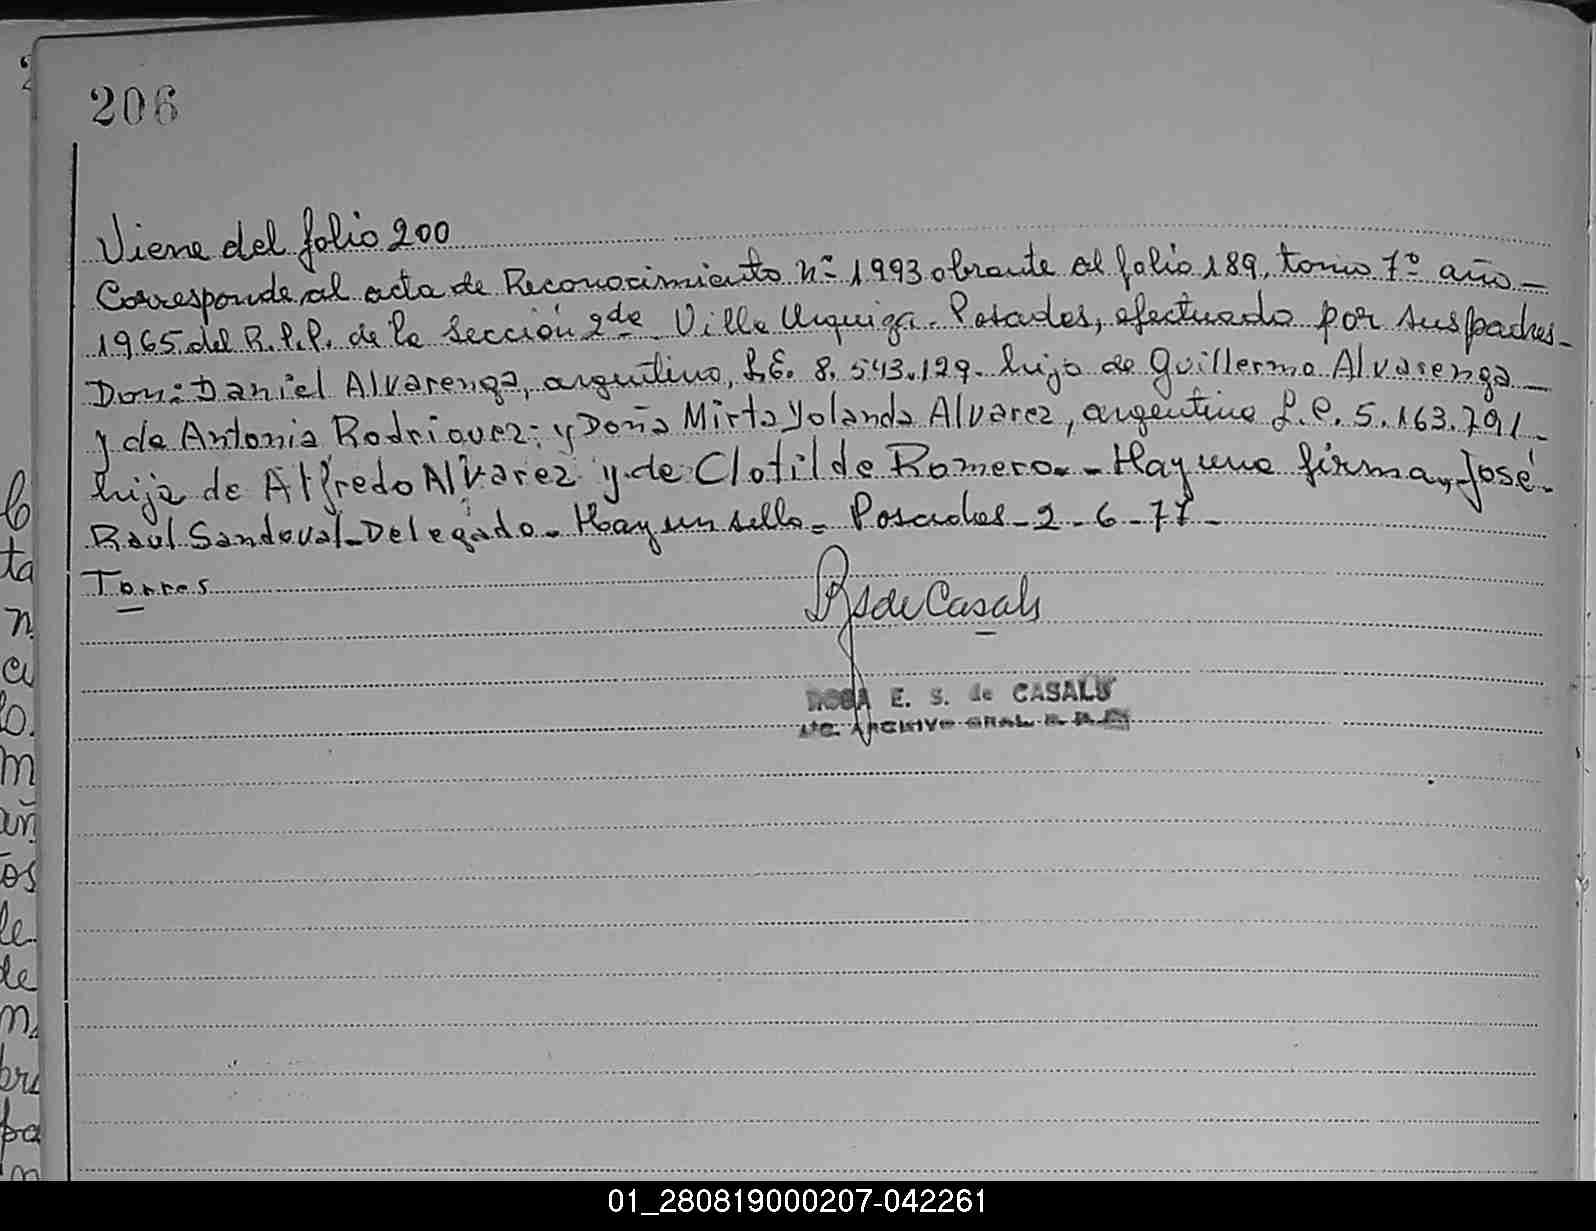 206
Viene del folio 200
Corresponde al acta de Reconocimiento nº 1993 obrante al folio 189, tomo 7º año -
1965 del R.P.P. de la Sección 2da Villa Urquiza - Posadas, efectuado por sus padres -
Don: Daniel Alvarenga, argentino, L.E. 8.543.129 - hijo de Guillermo Alvarenga -
y de Antonia Rodriguez; y Doña Mirta Yolanda Alvarez, argentina L.C. 5.163.791 -
hija de Alfredo Alvarez y de Clotilde Romero. - Hay una firma, José -
Raul Sandoval - Delegado - Hay un sello - Posadas - 2 - 6 - 77 -
Torres
RS de Casals
ROSA E. S. de CASALS
ARCHIVO GRAL.
ta
n
lo.
m
os
le
de
m
pa
01_280819000207-042261